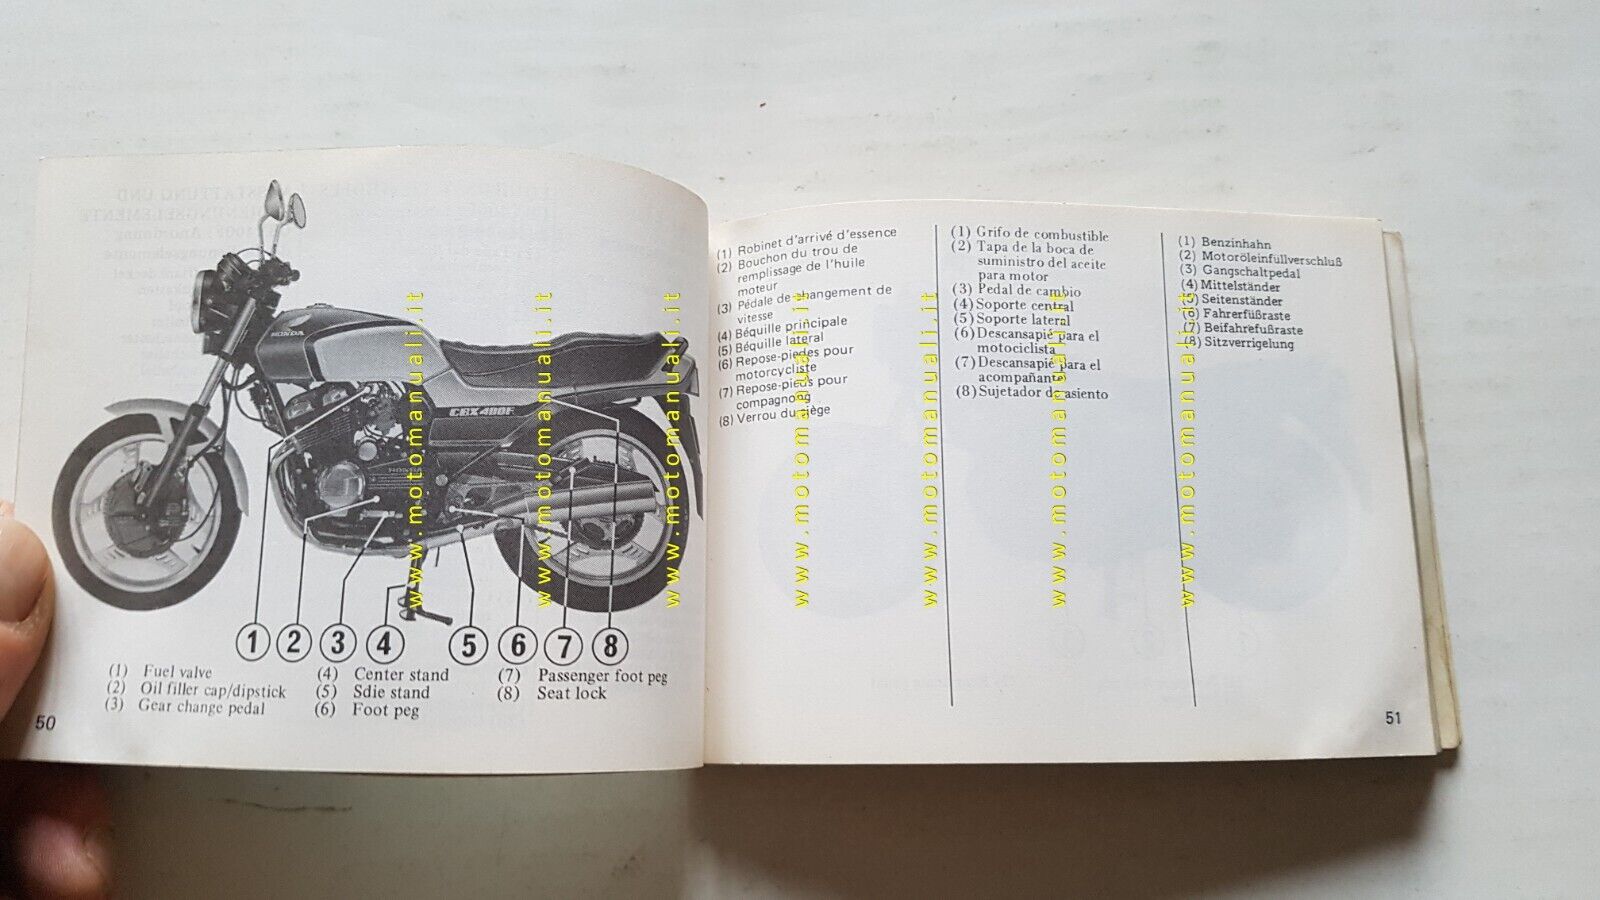 HONDA
CBX 400F
HONDA
1 2 3 4 5 6 7 8
(1) Fuel valve
(2) Oil filler cap/dipstick
(3) Gear change pedal
(4) Center stand
(5) Sdie stand
(6) Foot peg
(7) Passenger foot peg
(8) Seat lock
50
(1) Robinet d'arrivé d'essence
(2) Bouchon du trou de
remplissage de l'huile
moteur
(3) Pédale de changement de
vitesse
(4) Béquille principale
(5) Béquille lateral
(6) Repose-piedes pour
motorcycliste
(7) Repose-pieds pour
compagnong
(8) Verrou du siège
(1) Grifo de combustible
(2) Tapa de la boca de
suministro del aceite
para motor
(3) Pedal de cambio
(4) Soporte central
(5) Soporte lateral
(6) Descansapié para el
motociclista
(7) Descansapié para el
acompañante
(8) Sujetador de asiento
(1) Benzinhahn
(2) Motoröleinfüllverschluß
(3) Gangschaltpedal
(4) Mittelständer
(5) Seitenständer
(6) Fahrerfüßraste
(7) Beifahrefußraste
(8) Sitzverrigelung
51
www.motomanuali.it
www.motomanuali.it
www.motomanuali.it
www.motomanuali.it
www.motomanuali.it
www.motomanuali.it
www.motomanuali.it